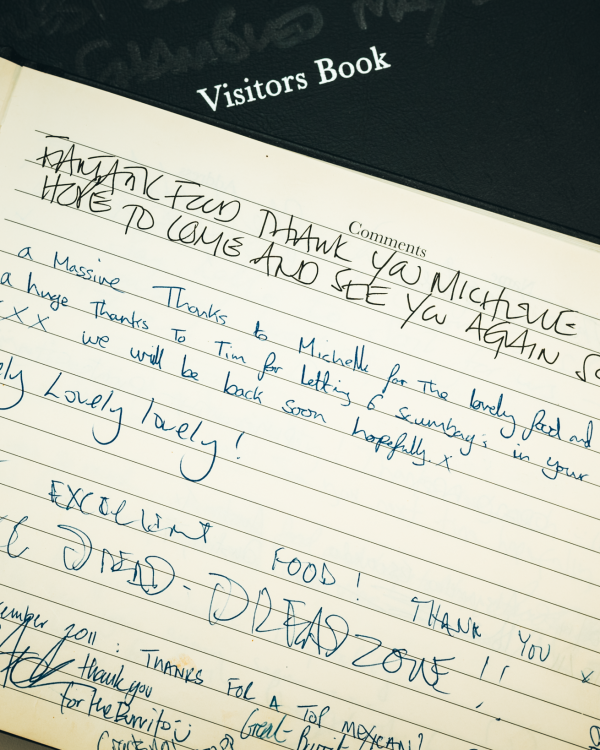 SHAMBLED MAY
Visitors Book
Comments
FANTATIC FOOD THANK YOU MICHELLE
HOPE TO COME AND SEE YOU AGAIN SO
a Massive Thanks to Michelle for The lovely food and
a huge Thanks To Tim for letting 6 scumbag's in your
XXX we will be back soon hopefully x
ely Lovely lovely!
EXCELLENT FOOD! THANK YOU x
DREAD-DREADZONE!!
ember 2011: THANKS FOR A TOP MEXICAN!
thankyou
for the Burrito
Great